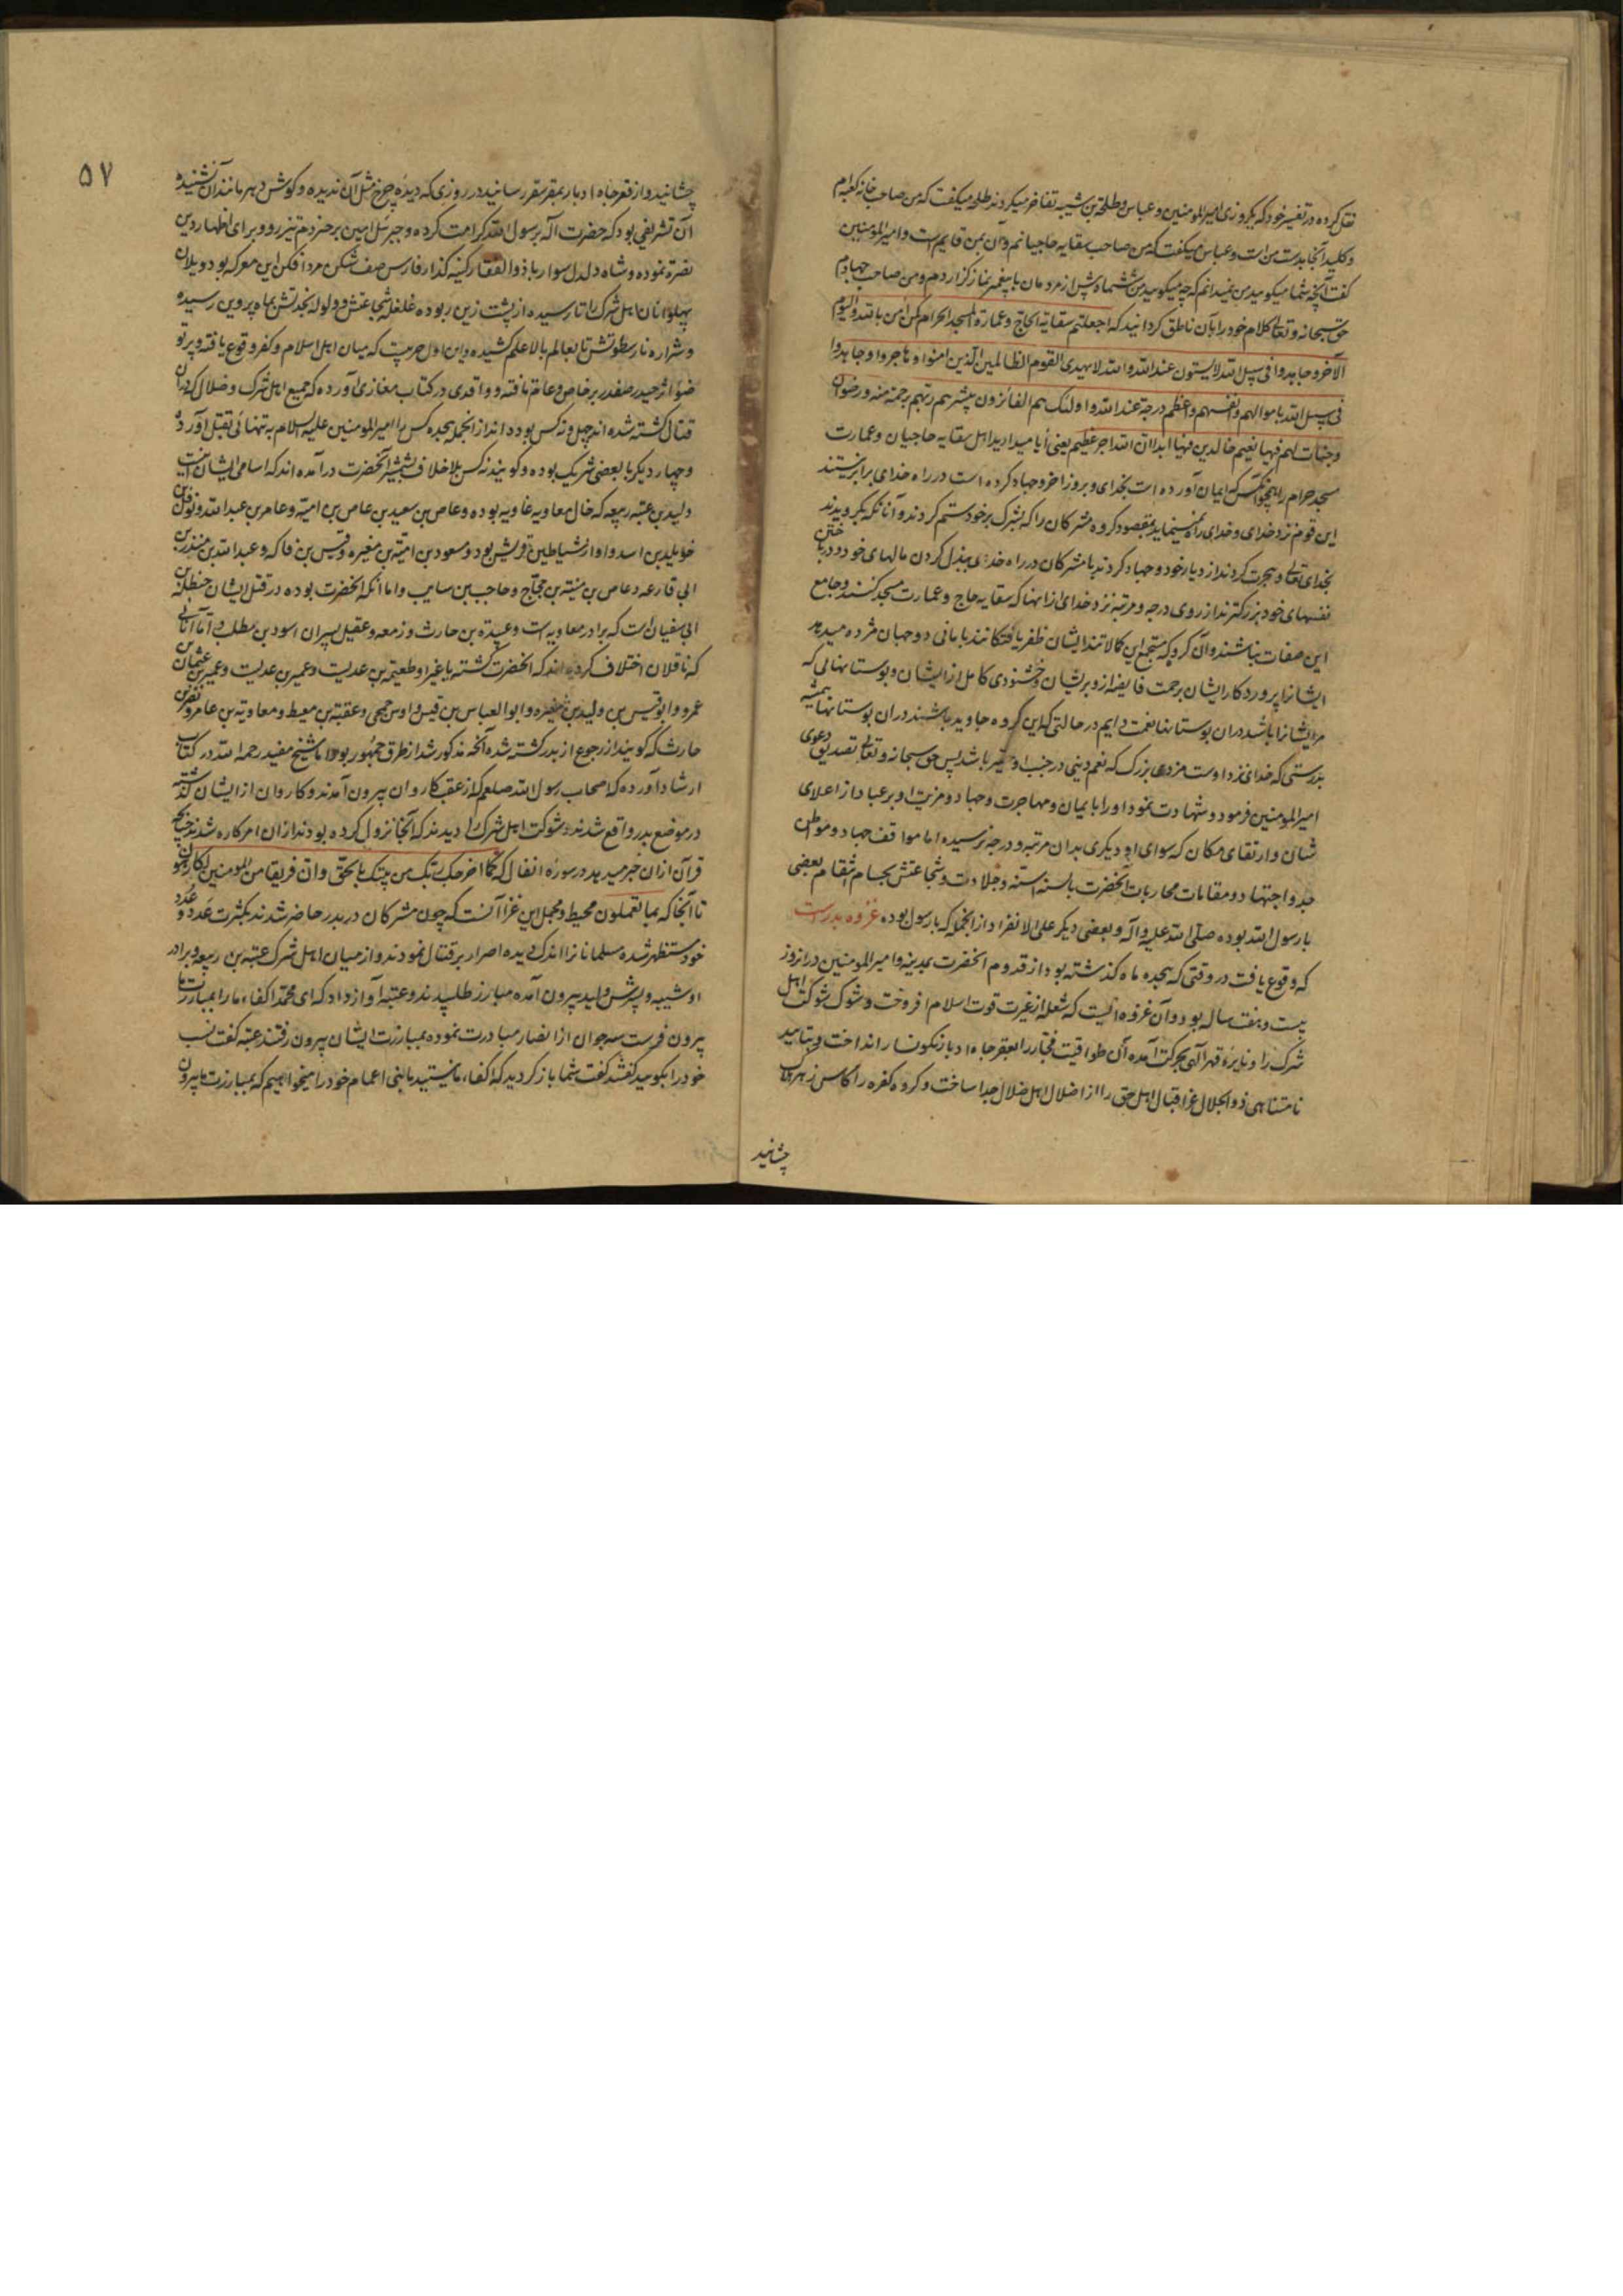 نقل کرده در تفسیر خود که یکروزی امیرالمومنین و عباس و طلحة بن شیبه تفاخر میکردند طلحه میکفت که من صاحب خانه کعبه‌ام
و کلید آنجا بدست من است و عباس میکفت که من صاحب سقایه حاجیانم و آن بمن قایم است و امیرالمومنین
کفت آنچه شما میکویید من نمیدانم که چه میکویید من ششماه پیش از مردمان با پیغمبر نماز کزاردم و من صاحب جهادم
حق سبحانه و تعالی کلام خود را بآن ناطق کردانید که اجعلتم سقایة الحاج و عمارة المسجد الحرام کمن امن بالله و الیوم
الآخر و جاهدوا فی سبیل الله لا یستون عند الله و الله لا یهدی القوم الظالمین الذین امنوا و هاجروا و جاهدوا
فی سبیل الله باموالهم و انفسهم و اعظم درجة عند الله و اولئک هم الفائزون یبشرهم ربهم برحمة منه و رضوان
و جنات لهم فیها نعیم خالدین فیها ابدا ان الله اجر عظیم یعنی آیا میدارید اهل سقایه حاجیان و عمارت
مسجد حرام را همچو آنکس که ایمان آورده است بخدای و بروز اخر و جهاد کرده است در راه خدای برابر نیستند
این قوم نزد خدای و خدای راه نمینماید بمقصود کروه مشرکان را که بشرک بر خود ستم کردند و آنانکه بکرویدند
بخدای تعالی و هجرت کردند از دیار خود و جهاد کردند با مشرکان در راه خدای ببذل کردن مالهای خود و در باختن
نفسهای خود بزرکترند از روی درجه و مرتبه نزد خدای از انها که سقایه حاج و عمارت مسجد کنند و جامع
این صفات نباشند و آن کروه که مستجمع این کالاتند ایشان ظفر یافتکانند بامانی دو جهان مژده میدهد
ایشانرا پروردکار ایشان برحمت فایضه ازو بریشان و خشنودی کامل از ایشان و بوستانهائی که
مریشانرا باشد دران بوستانها نعمت دایم در حالتی که این کروه جاوید باشند دران بوستانها همیشه
بدرستی که خدای نزد اوست مزدی بزرک که نعم دینی در جنب او حقیر باشد پس حق سبحانه و تعالی تصدیق دعوی
امیرالمومنین فرمود و شهادت نمود او را بایمان و مهاجرت و جهاد و مزیت او بر عباد از اعلای
شان و ارتقای مکان که سوای او دیکری بدان مرتبه و درجه نرسیده اما مواقف جهاد و مواطن
جد و اجتهاد و مقامات محاربات آنحضرت بالسنه اسنه و جلادت و شجاعتش بحسام انتقام بعضی
با رسول الله بوده صلی الله علیه و آله و بعضی دیکر علی الانفراد از انجمله که با رسول بوده غزوه بدرست
که وقوع یافت در وقتی که هجده ماه کذشته بود از قدوم انحضرت بمدینه و امیرالمومنین در انروز
بیست و هفت ساله بود و آن غزوه ایست که شعله از غیرت قوت اسلام افروخت و شوک شوکت اهل
شرک را و نایره قهر الهی بحرکت آمده آن طواقیت فجار را بقعر چاه ادبار نکونسار انداخت و بتایید
نامتناهی ذوالجلال غزا قبال اهل حق را از اضلال اهل ضلال جدا ساخت و کروه کفره را کاس زهر هلاک
چشانید
۵۷
چشانید و از قعر چاه ادبار بمقر سقر رسانید در روزی که دیده چرخ مثل آن ندیده و کوش دهر مانند آن نشنیده
آن تشریفی بود که حضرت اله برسول الله کرامت کرده و جبرئیل امین بر حیزوم تیزرو و برای اظهار دین
نصرة نموده و شاه دلدل سوار با ذوالفقار کینه کذار فارس صف شکن مردافکن این معرکه بود و یلان
پهلوانان اهل شرک را تا رسیده از پشت زین ربوده غلغله شجاعتش و ولوله نجدتش بماه پروین رسیده
و شراره نار سطوتش تا بعالم بالا علم کشیده و این اول حربیست که میان اهل اسلام و کفر وقوع یافته و پرتو
ضوء اثر حیدر صفدر بر خاص و عام تافته و واقدی در کتاب مغازی آورده که جمیع اهل شرک و ضلال که دران
قتال کشته شده اند چهل و نه کس بوده اند از انجمله هجده کس را امیرالمومنین علیه السلام به تنهائی بقتل آورد
و چهار دیکر با بعضی شریک بوده و کویند نه کس بلا خلاف بشمشیر آنحضرت درآمده اند که اسامی ایشان اینست
ولید بن عتبه ربیعه که خال معاویه غاویه بوده و عاص بن سعید بن عاص بن امیه و عامر بن عبدالله و نوفل بن
خویلد بن اسد و او از شیاطین قریش بود و مسعود بن امیة بن مغیره و قیس بن فاکه و عبدالله بن منذر بن
ابی قارعه و عاص بن منبه بن حجاج و حاجب بن سایب و اما انکه انحضرت بوده در قتل ایشان حنظلة بن
ابی سفیان است که برادر معاویه است و عبیدة بن حارث و زمعه و عقیل پسران اسود بن مطلب و اما آنانی
که ناقلان اختلاف کرده اند که انحضرت کشته یا غیر او طعیمة بن عدیست و عمیر بن عدیست و عمیر بن عثمان بن
عمرو و ابوقیس بن ولید بن مغیره و ابوالعباس بن قیس و اوس جمحی و عقبة بن معیط و معاویة بن عامر و نضر بن
حارث که کویند از رجوع از بدر کشته شده آنچه مذکور شد از طرق جمهور بود اما شیخ مفید رحمه الله در کتاب
ارشاد آورده که اصحاب رسول الله صلعم که از عقب کاروان بیرون آمدند و کاروان از ایشان کذشته
در موضع بدر واقع شدند و شوکت اهل شرک را دیدند که آنجا نزول کرده بودند از ان امر کاره شدند چنانچه
قرآن ازان خبر میدهد در سوره انفال که کما اخرجک ربک من بیتک بالحق و ان فریقا من المومنین لکارهون
تا آنجا که بما تعملون محیط و مجمل این غزا آنست که چون مشرکان در بدر حاضر شدند بکثرت عدد و عدد
خود مستظهر شده مسلمانانرا اندک دیده اصرار بر قتال نمودند و از میان اهل شرک عتبه بن ربیعه و برادر
او شیبه و پسرش ولید بیرون آمده مبارز طلبیدند و عتبه آواز داد که ای محمد اکفاء ما را بمبارزت ما
بیرون فرست سه جوان از انصار مبادرت نموده بمبارزت ایشان بیرون رفتند عتبه کفت نسب
خود را بکویید کفتند کفت شما باز کردید که اکفاء ما نیستید ما بنی اعمام خود را میخواهیم که بمبارزت ما بیرون